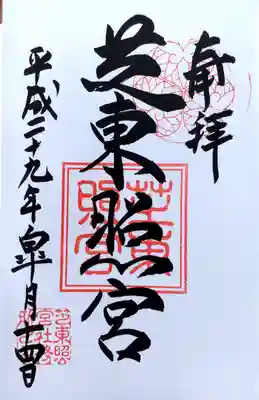 奉拝
芝東照宮
芝東
照宮
平成二十九年皐月十四日
芝東照
宮社務
所印